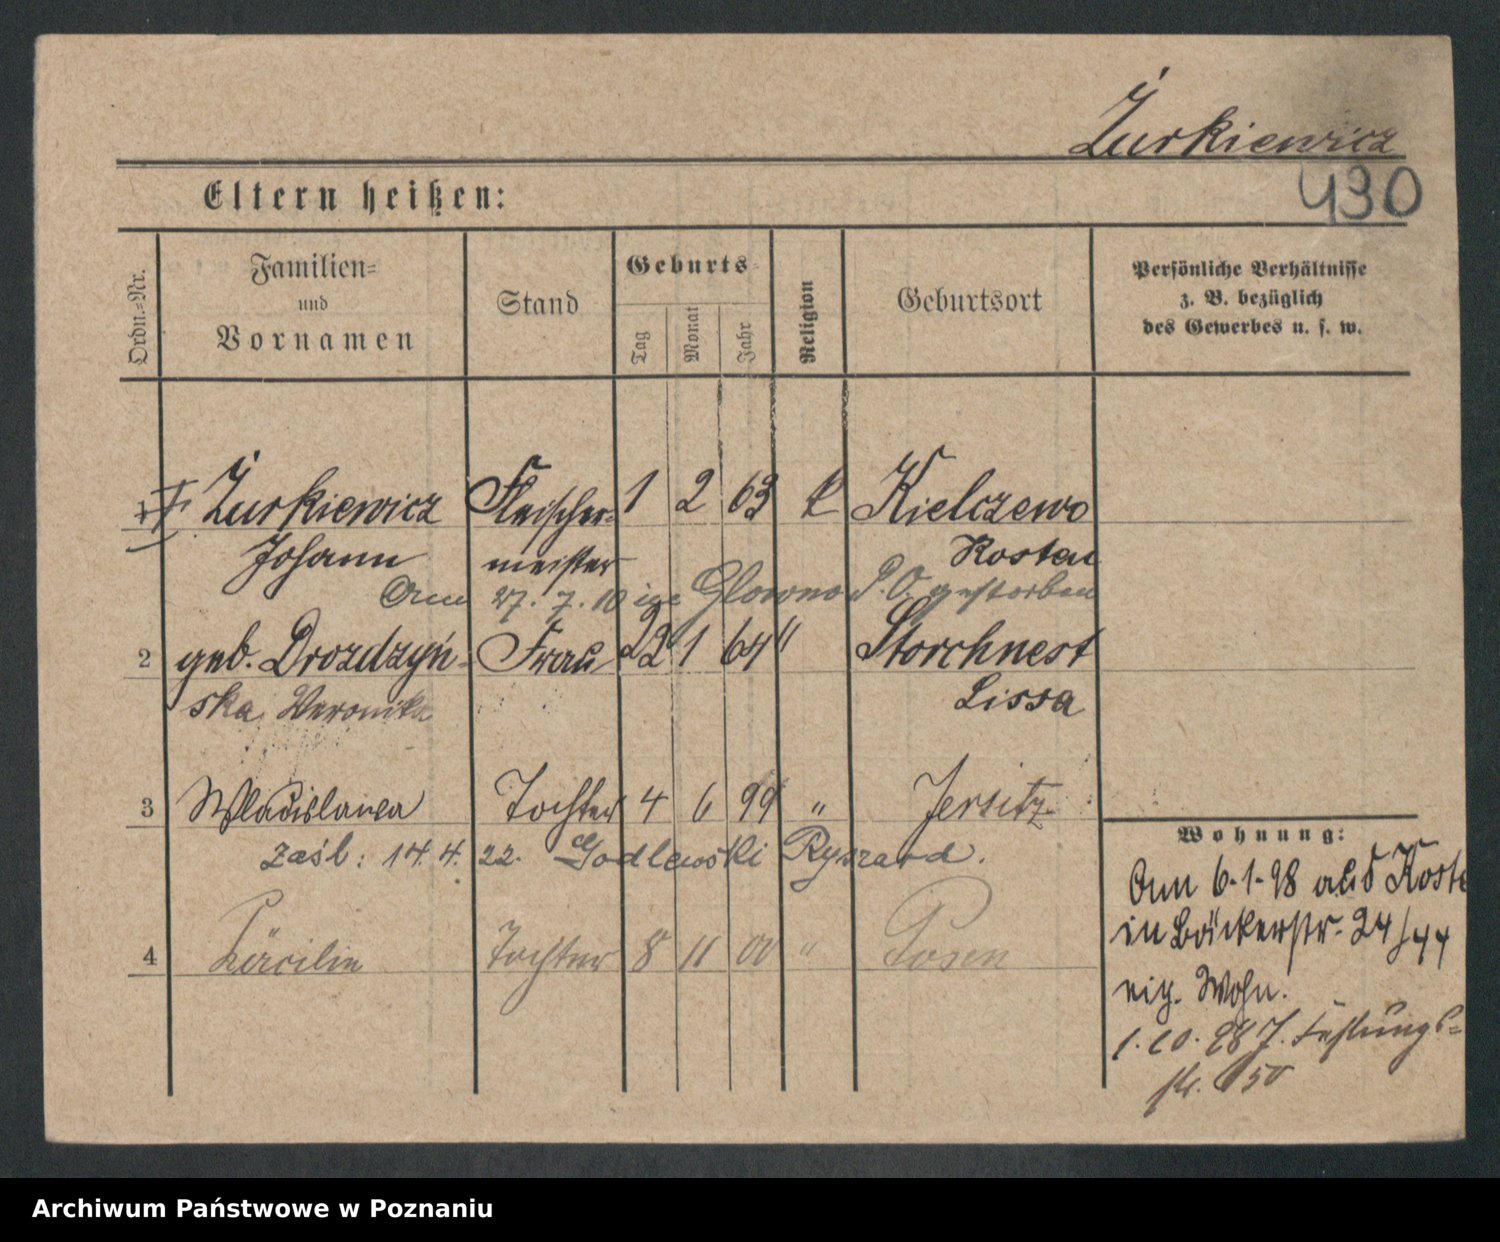 Żurkiewicz
430
Eltern heißen:
Ordn.-Nr.
Familien-
und
Vornamen
Stand
Geburts-
Tag
Monat
Jahr
Religion
Geburtsort
Persönliche Verhältnisse
z. B. bezüglich
des Gewerbes u. s. w.
1 Żurkiewicz Fleischer- 1 2 63 k Kielczewo
Johann meister Kosten
Am 27. 7. 10 in Glowno P. O. gestorben
2 geb. Drozdzyń- Frau 22 1 64 " Storchnest
ska Veronika Lissa
3 Wladislawa Tochter 4 6 99 " Jersitz
zaśl: 14. 4. 22. Godlewski Ryszard.
4 Cäcilie Tochter 8 11 00 " Posen
Wohnung:
6.1.98 aus
in Bäckerstr. 24/
eig. Wohn.
1.10.98 J. Festungs-
str.
Archiwum Państwowe w Poznaniu